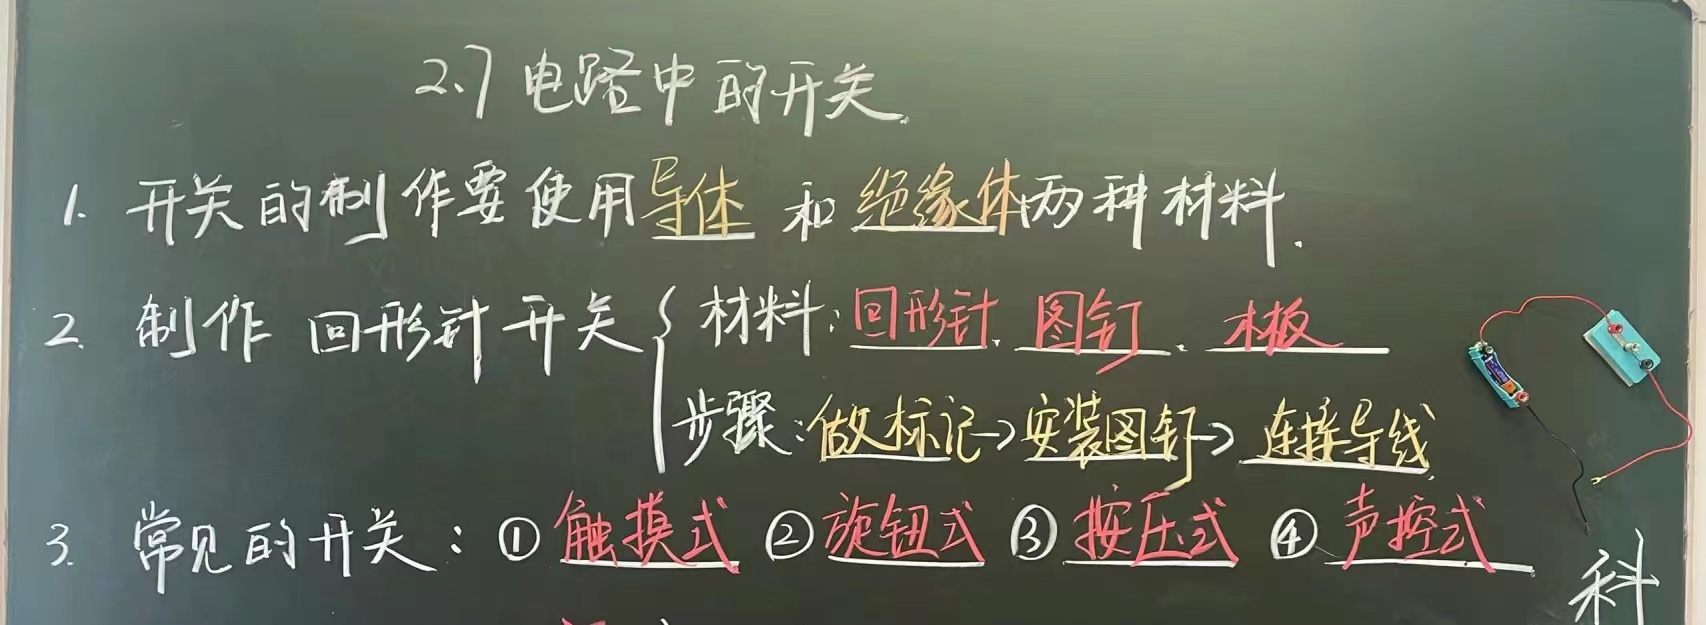 2.7 电路中的开关.
1. 开关的制作要使用导体和绝缘体两种材料.
2. 制作回形针开关{材料:回形针、图钉、木板
步骤:做标记→安装图钉→连接导线
3. 常见的开关:①触摸式②旋钮式③按压式④声控式
科